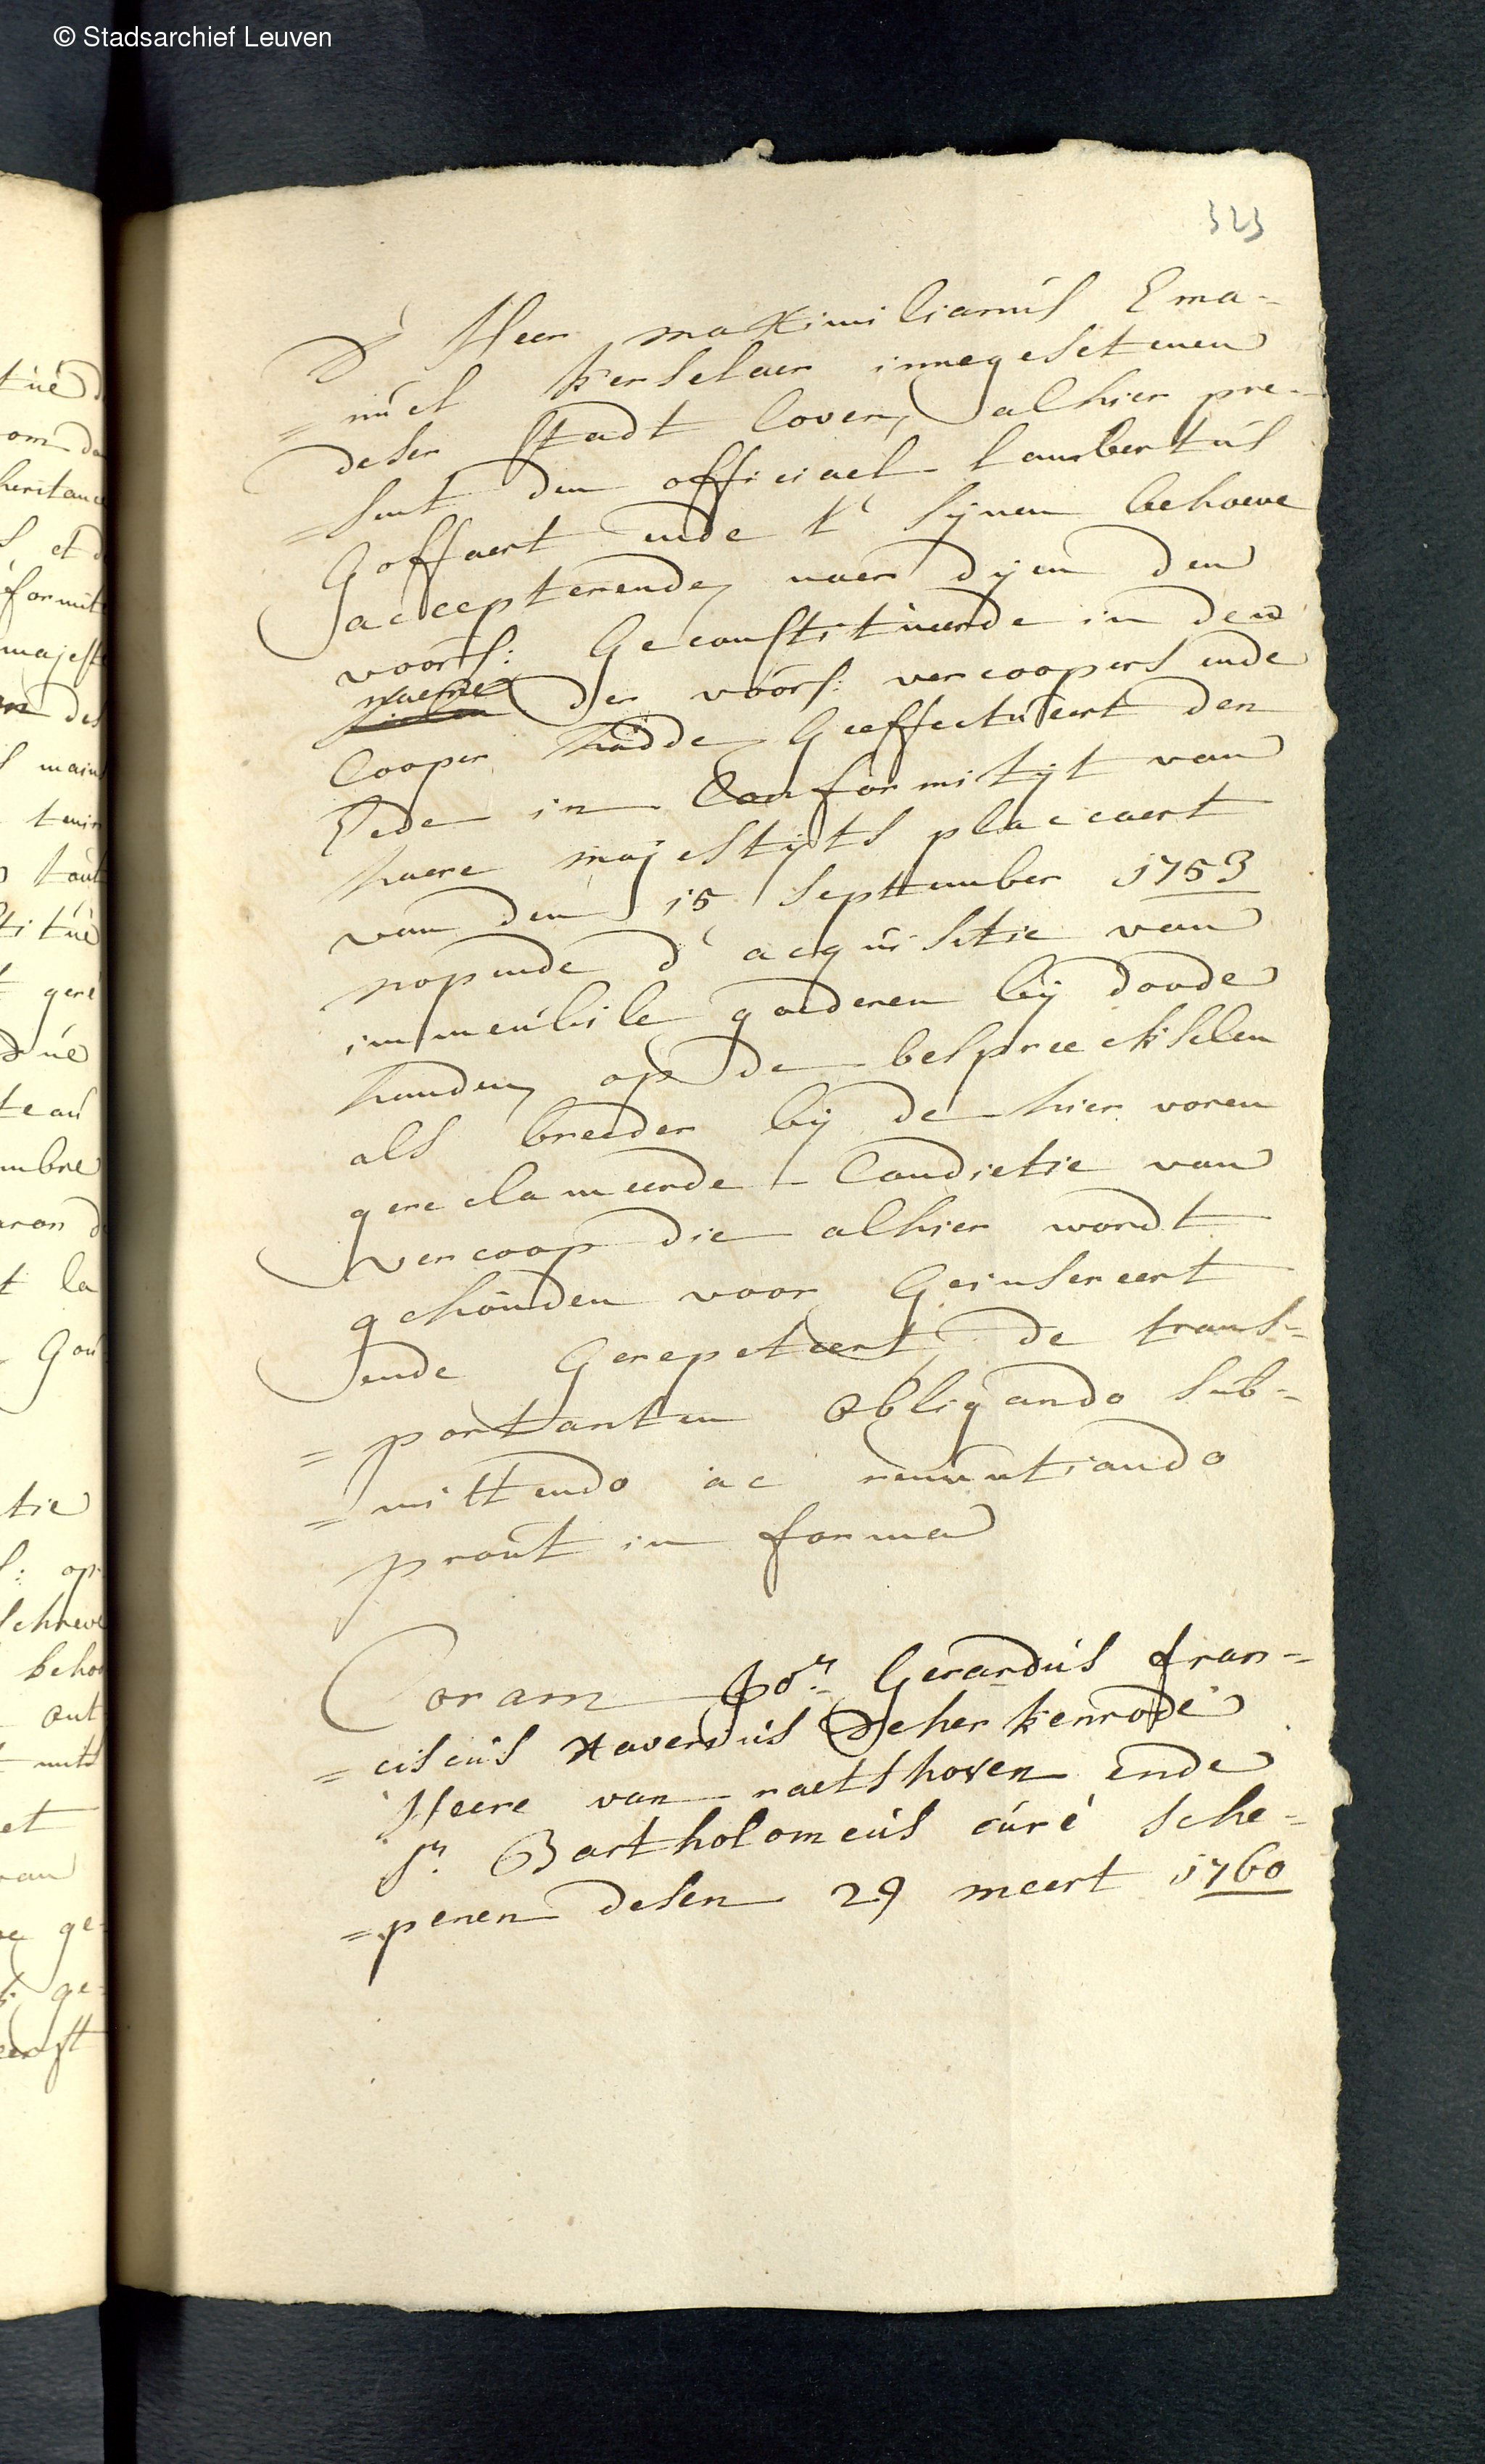 © Stadsarchief Leuven
323
D' Heer maximilianús Ema-
=núel kerselaer innegesetenen
deser stadt loven, alhier pre-
=sent den officiael lambertús
Goffaert ende t' sijnen behoeve
accepterende, naer dijen den
voors: Geconstitúeerde in den
naeme der voors: vercoopers ende
Cooper hadde Geeffectúeert den
Eede in Conformitijt van
haere majestijts placcaert
van den 15 septtember 1753
nopende d' acqúisitie van
immeúbile goederen bij doode
handen, op de bespreeckselen
als breeder bij de hier voren
gereclameerde Condietie van
vercoop die alhier wordt
gehoúden voor Geinsereert
ende Gerepeteert, de trans-
=portanten obligando súb-
=mittendo ac renuntiando
proút in forma
Coram jor. Gerardús fran-
=ciscús xaveriús de herkenrode
Heere van raetshoven ende
sr. Bartholomeús cúré sche-
=penen desen 29 meert 1760